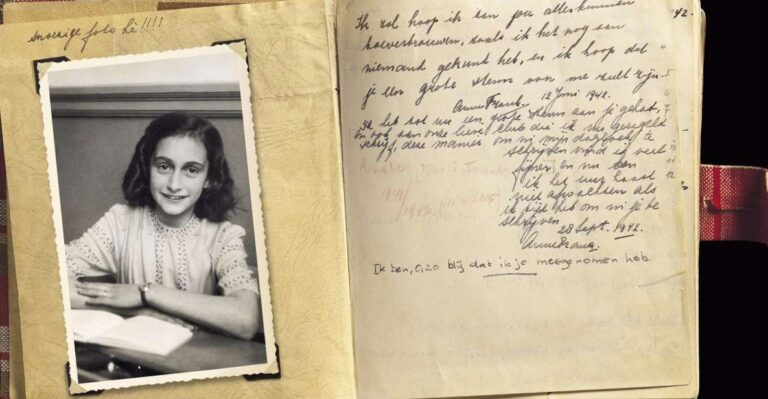 snoezige foto hè!!!!
42.
Ik zal hoop ik aan jou alles kunnen
toevertrouwen, zoals ik het nog aan
niemand gekund heb, en ik hoop dat
je een grote steun voor me zult zijn.
Anne Frank. 12 Juni 1942.
Ik heb tot nu een grote steun aan je gehad,
en ook aan onze lieve club die ik nu geregeld
schrijf, deze manier om in mijn dagboek te
schrijven vind ik veel
fijner en nu kan
ik het uur haast
niet afwachten als
ik tijd heb om in je te
schrijven
28 Sept. 1942.
Anne Frank
Ik ben, O, zo blij dat ik je meegenomen heb.